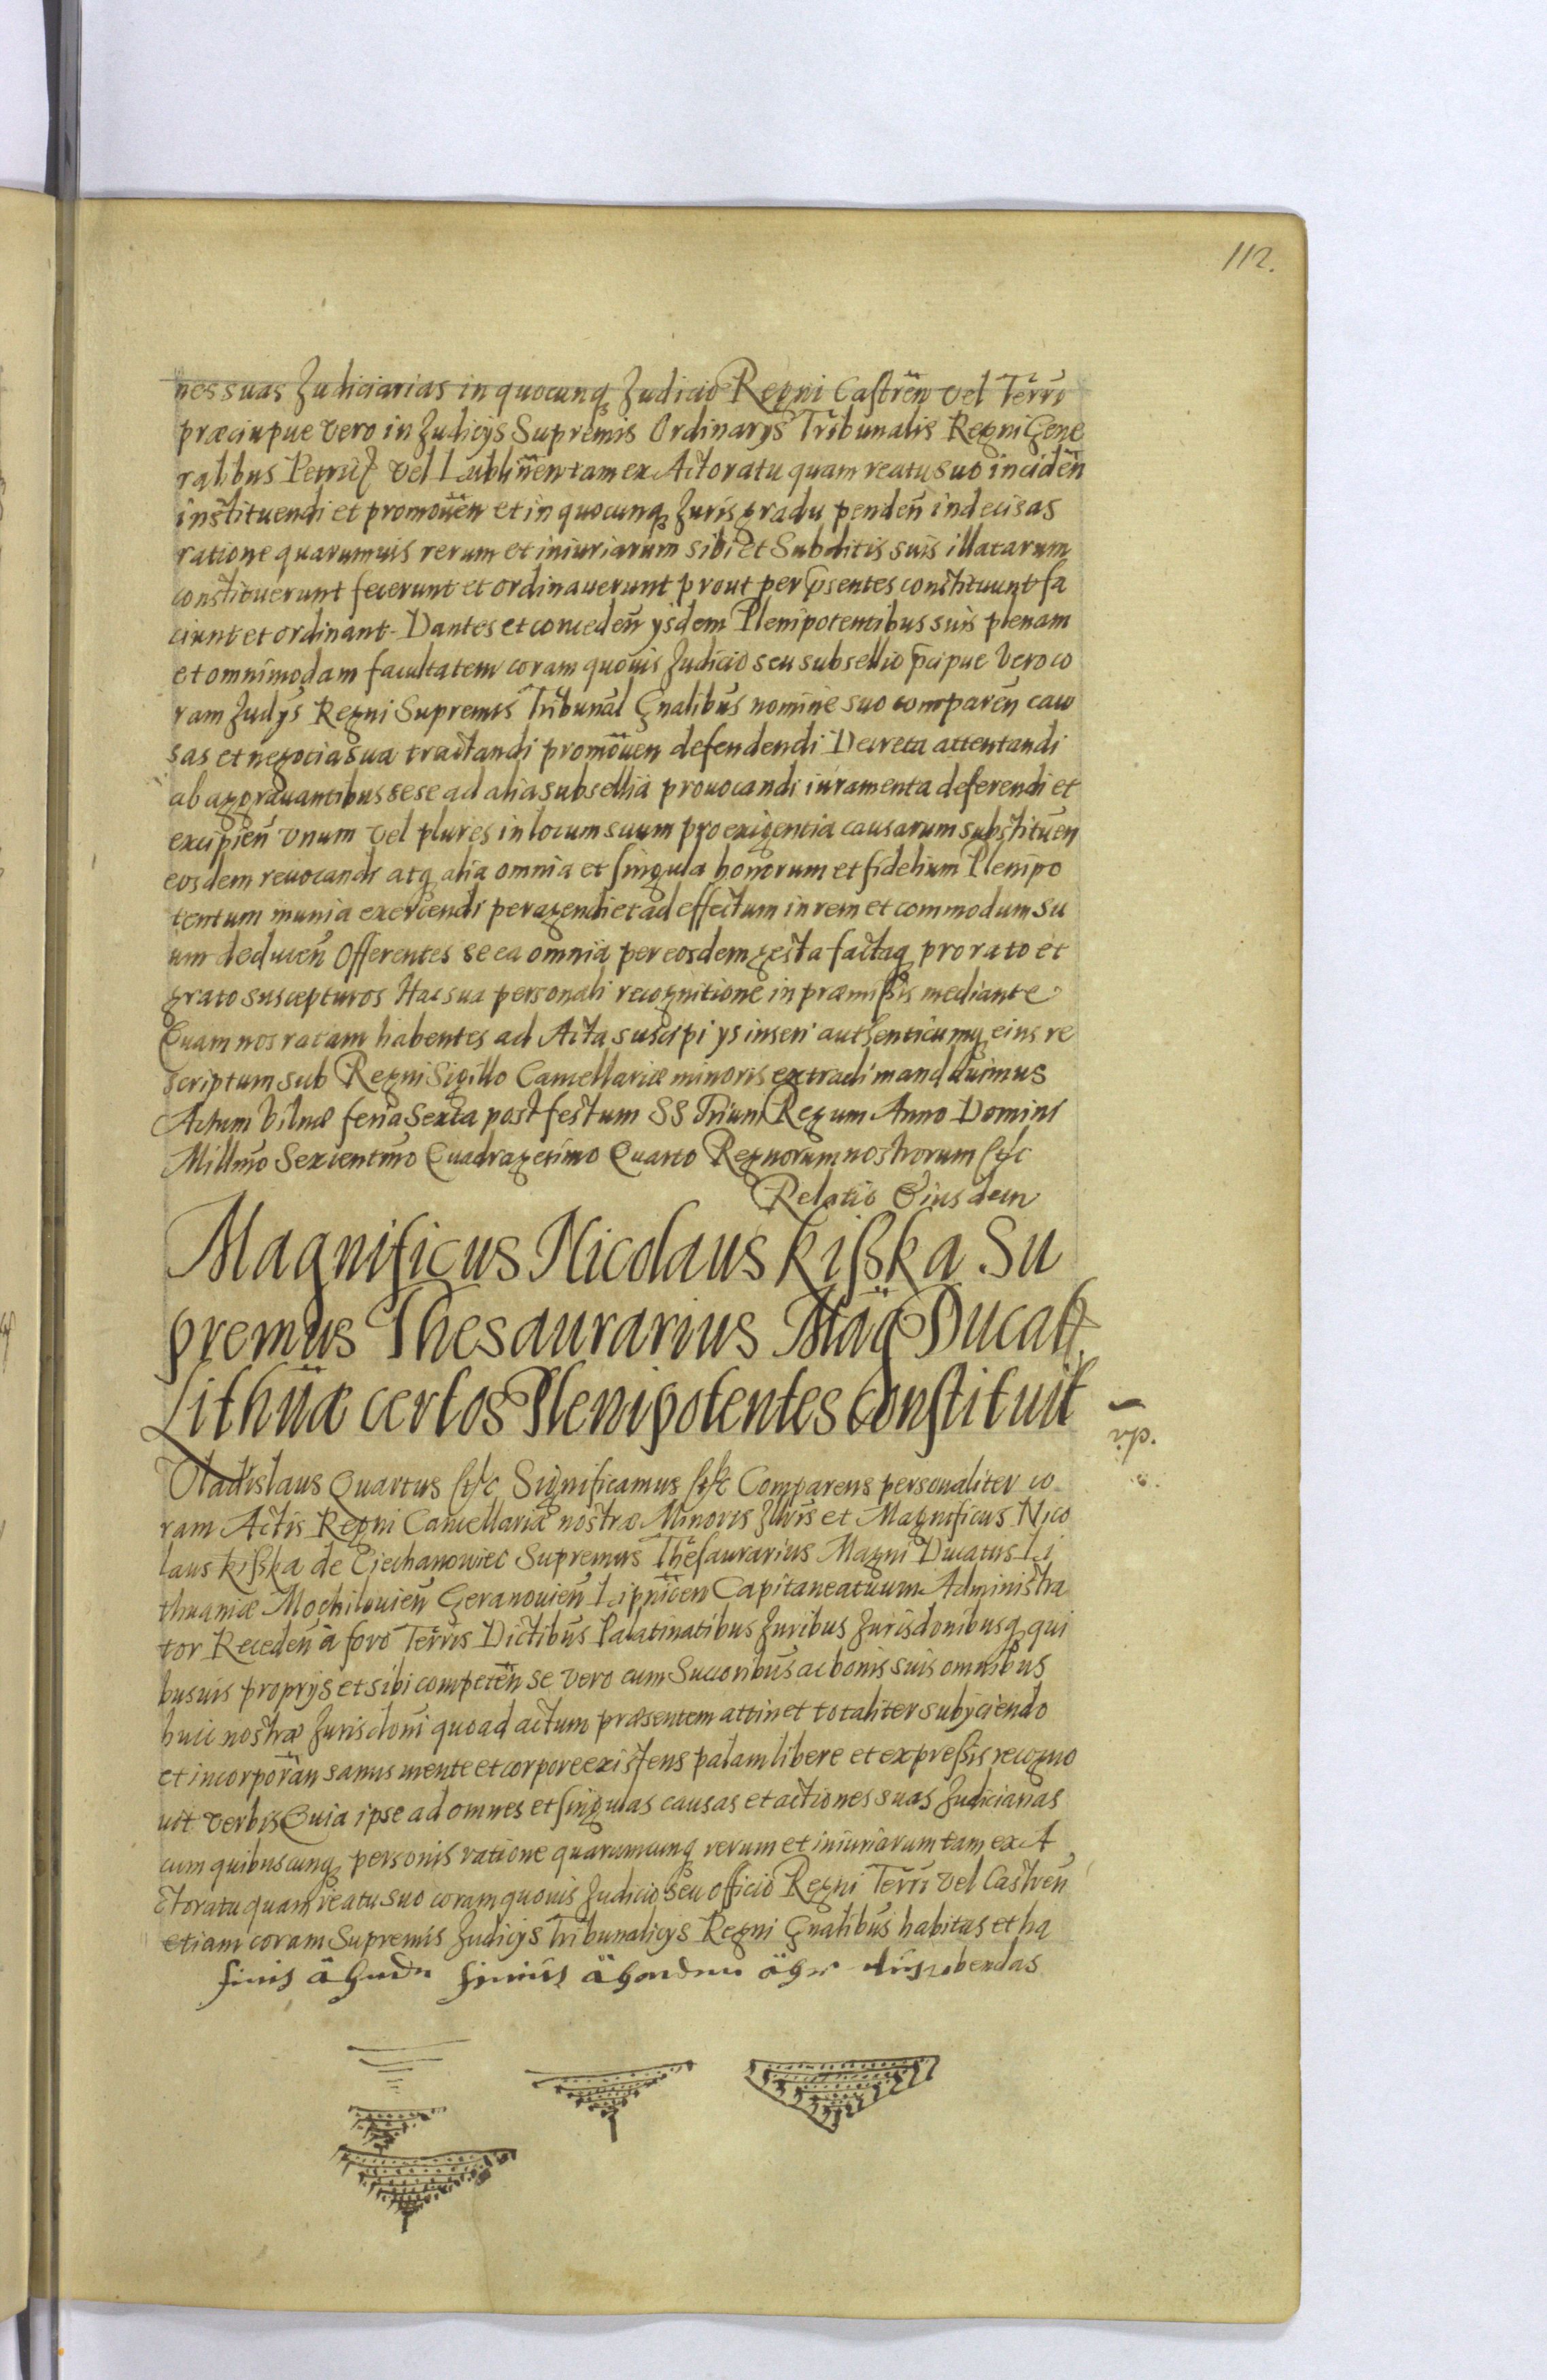 112.
nes suas Judiciarias in quocunq Judicio Regni Castren̄ vel Terr̄i
præciupue vero in Judicijs Supremis Ordinarÿs Tribunalis Regni Gene
ralibus Petric̄ vel Lublinen̄ tam ex Actoratu quam reatu suo inciden̄
instituendi et promouen̄ et in quocunq Juris gradu penden̄ indecisas
ratione quarumuis rerum et iniuriarum sibi et Subditis suis illatarum
constituerunt fecerunt et ordinauerunt prout per p̄sentes constituunt fa
ciunt et ordinant. Dantes et conceden̄ ysdem Plenipotentibus suis plenam
et omnimodam facultatem coram quouis Judicio seu subsellio p̄cipue vero co
ram Judÿs Regni Supremis Tribunal̄ Gnalibus nomine suo comparen̄ cau
sas et negocia sua tractandi promouen̄ defendendi Decreta attentandi
ab aggrauantibus sese ad alia subsellia prouocandi iuramenta deferendi et
excipien̄ vnum vel plures in locum suum pro exigentia causarum substituen̄
eosdem reuocandi atq alia omnia et singula bonorum et fidelium Plenipo
tentum munia exercendi peragendi et ad effectum in rem et commodum su
um deducen̄ Offerentes se ea omnia per eosdem gesta factaq pro rato et
grato suscepturos Hac sua personali recognitione in præmissis mediante
Quam nos ratam habentes ad Acta suscipi ys inseri authenticumq eius re
scriptum sub Regni Sigillo Cancellariæ minoris extradi mandauimus
Actum Vilnæ feria Sexta post festum SS Trium Regum Anno Domini
Millmo Sexcentmo Quadragesimo Quarto Regnorum nostrorum etc
Relatio Eiusdem
Magnificus Nicolaus Kißka Su
premus Thesaurarius Mag Ducatt
Lithuæ certos Plenipotentes constituit
Vladislaus Quartus etc Significamus etc Comparens personaliter co
ram Actis Regni Cancellariæ nostræ Minoris Juris et Magnificus Nico
laus Kißka de Ciechanowiec Supremus Thesaurarius Magni Ducatus Li
thuaniæ Mochilouien̄ Geranouien̄ Lipnicen̄ Capitaneatuum Administra
tor Receden̄ a foro Terris Dictibus Palatinatibus Juribus Jurisdonibusq qui
busuis proprijs et sibi competen̄ se vero cum Succoribus ac bonis suis omnibus
huic nostræ Jurisdoni quo ad actum præsentem attinet totaliter subÿciendo
et incorporan̄ sanus mente et corpore existens palam libere et expreßis recogno
uit verbis Quia ipse ad omnes et singulas causas et actiones suas Judiciarias
cum quibuscunq personis ratione quarumcunq rerum et iniuriarum tam ex A
ctoratu quam reatu suo coram quouis Judicio seu officio Regni Terri vel Castren̄
etiam coram Supremis Judicijs Tribunalicijs Regni Gnalibus habitas et ha
bendas